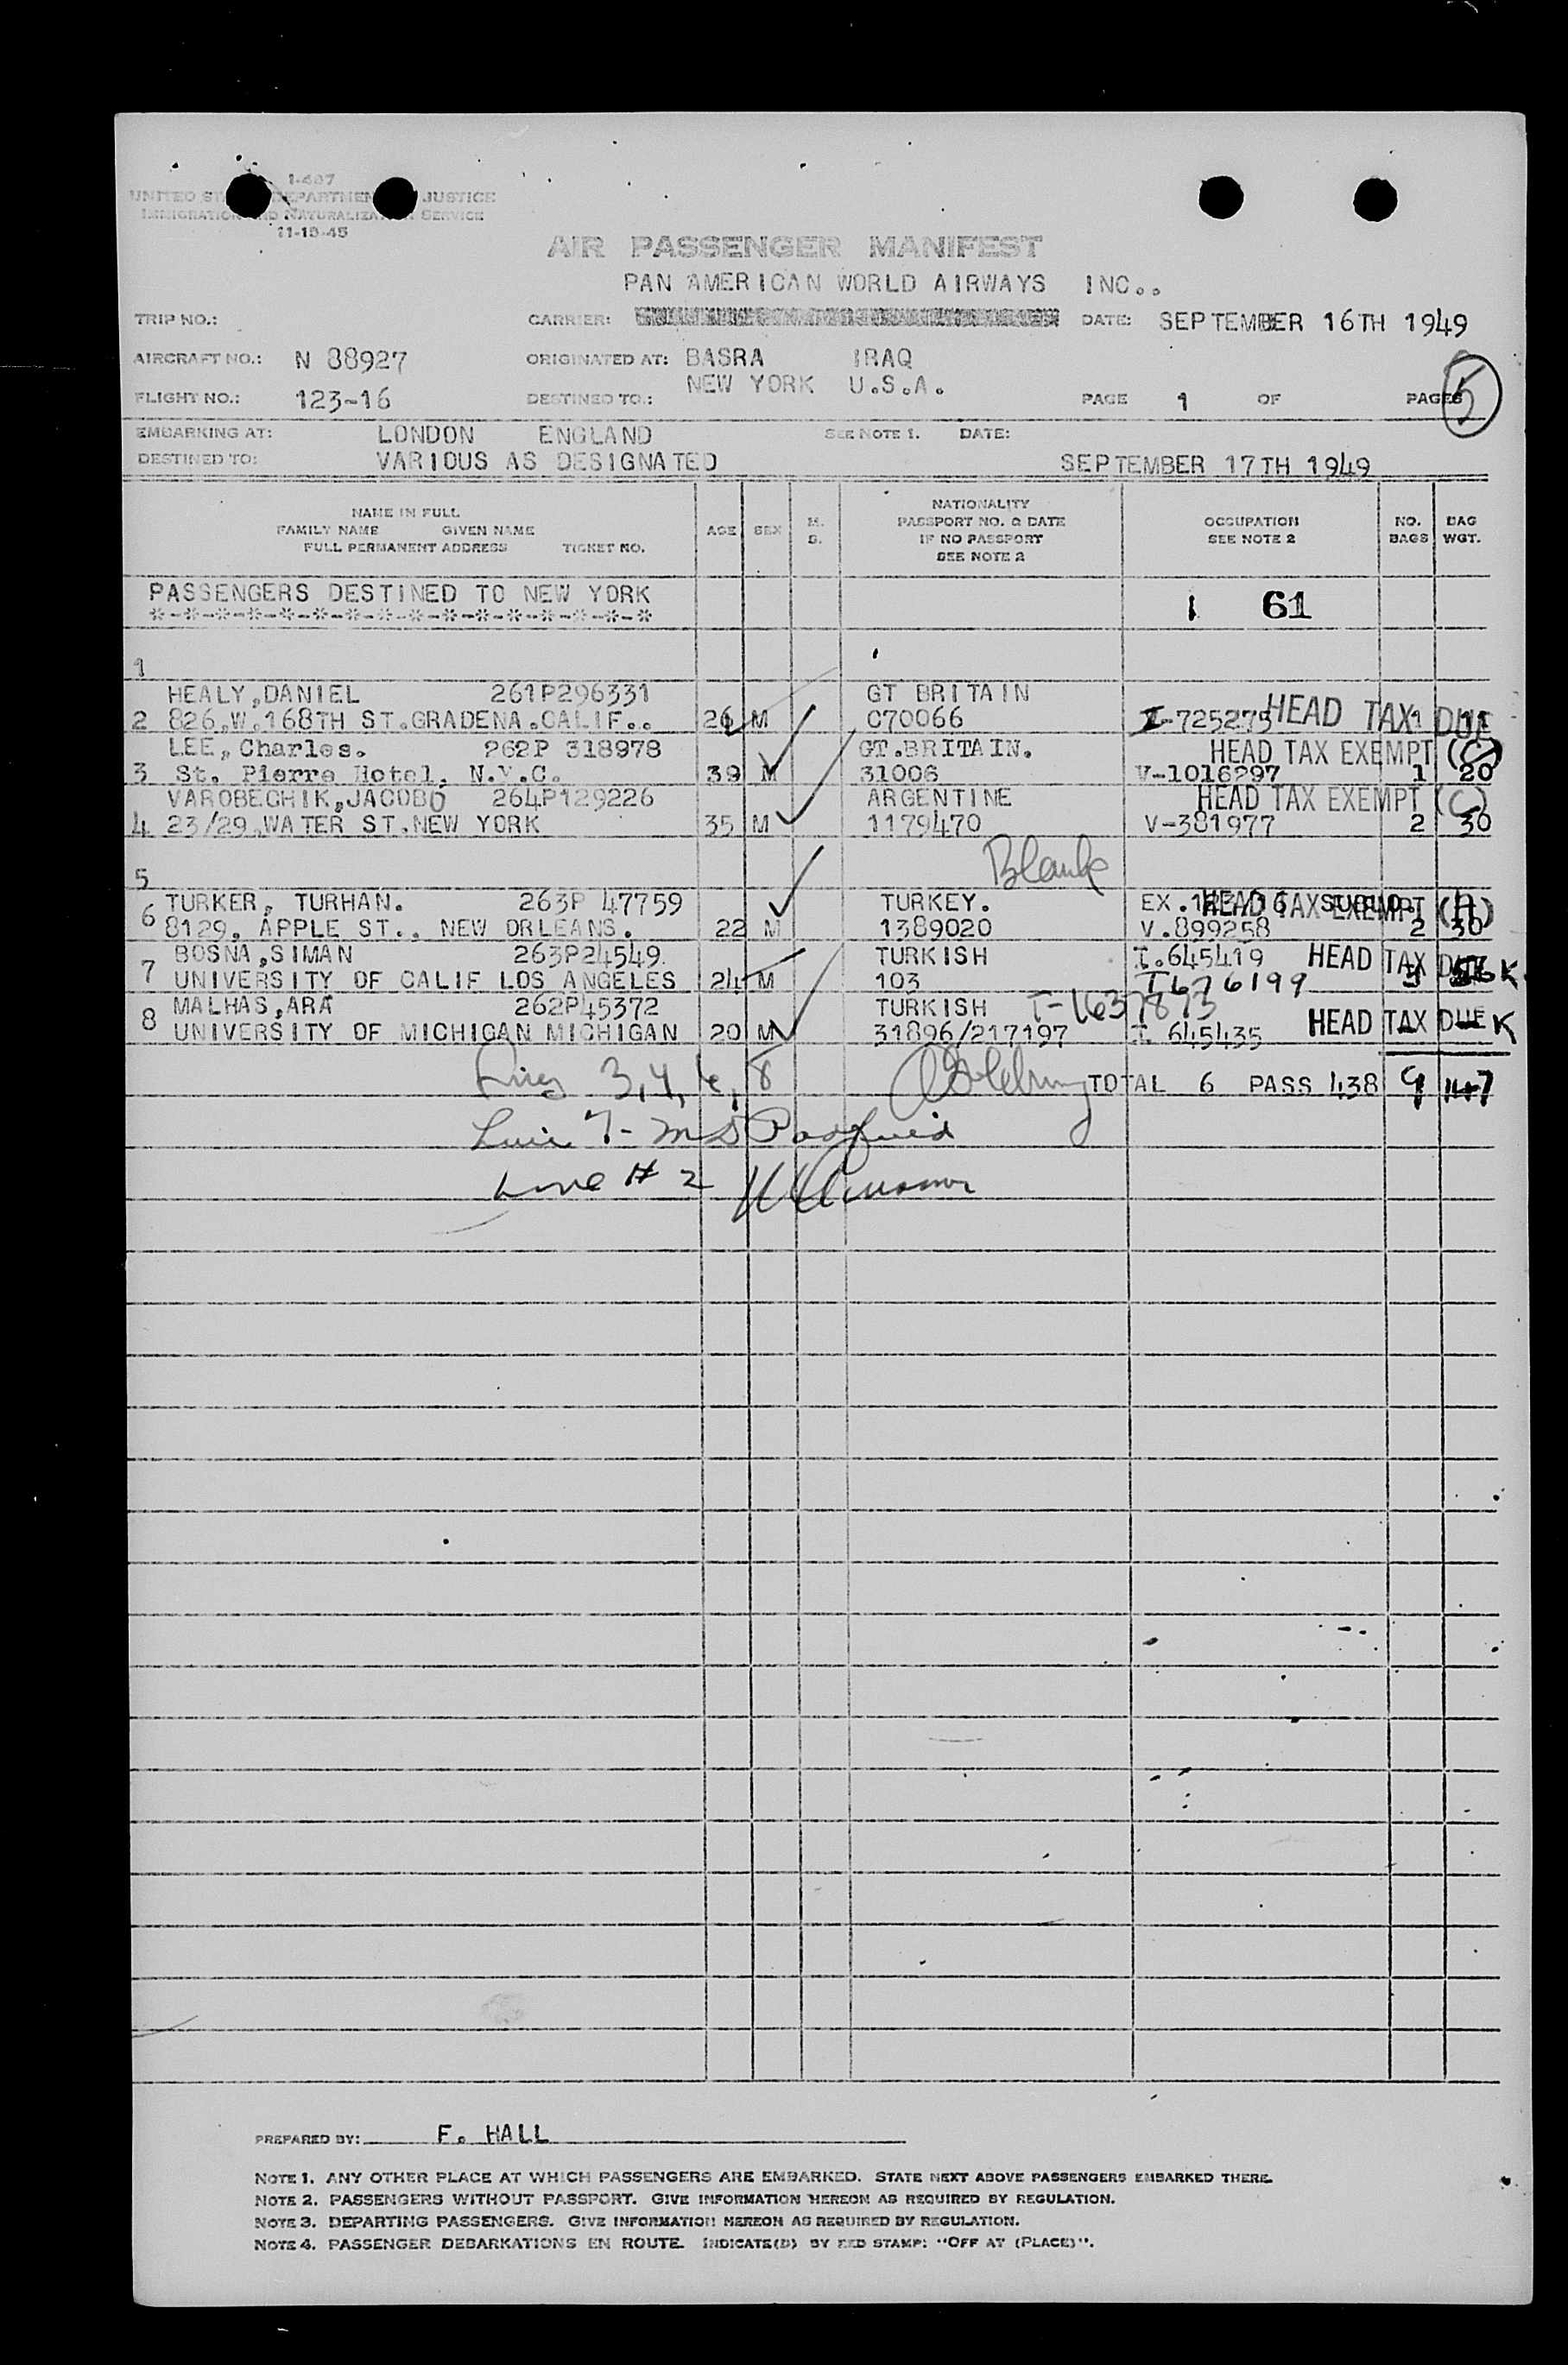 I-407
UNITED STATES DEPARTMENT OF JUSTICE
IMMIGRATION AND NATURALIZATION SERVICE
11-15-45
AIR PASSENGER MANIFEST
PAN AMERICAN WORLD AIRWAYS INC..
TRIP NO.: CARRIER: DATE: SEPTEMBER 16TH 1949
AIRCRAFT NO.: N 88927 ORIGINATED AT: BASRA IRAQ
NEW YORK U.S.A.
FLIGHT NO.: 123-16 DESTINED TO.: PAGE 1 OF PAGES 5
EMBARKING AT: LONDON ENGLAND SEE NOTE 1. DATE:
DESTINED TO: VARIOUS AS DESIGNATED SEPTEMBER 17TH 1949
NAME IN FULL
FAMILY NAME GIVEN NAME
FULL PERMANENT ADDRESS TICKET NO.
AGE SEX
NATIONALITY
PASSPORT NO. & DATE
IF NO PASSPORT
SEE NOTE 2
OCCUPATION
SEE NOTE 2
NO. BAGS
BAG WGT.
PASSENGERS DESTINED TO NEW YORK
*-*-*-*-*-*-*-*-*-*-*-*-*-*-*-*
1 61
1
HEALY,DANIEL 261P296331 GT BRITAIN
2 826.W.168TH ST.GRADENA.CALIF.. 26 M C70066 I-725275 HEAD TAX DUE 1 11
LEE, Charles. 262P 318978 GT.BRITAIN. HEAD TAX EXEMPT (C)
3 St. Pierre Hotel, N.Y.C. 39 M 31006 V-1016297 1 20
VAROBECHIK,JACOBO 264P129226 ARGENTINE HEAD TAX EXEMPT (C)
4 23/29.WATER ST.NEW YORK 35 M 1179470 V-381977 2 30
5 Blank
TURKER, TURHAN. 263P 47759 TURKEY. EX. HEAD TAX EXEMPT (H)
6 8129, APPLE ST., NEW ORLEANS. 22 M 1389020 V.899258 2 30
BOSNA,SIMAN 263P24549. TURKISH I.645419 HEAD TAX DUE
7 UNIVERSITY OF CALIF LOS ANGELES 24 M 103 T676199 K
MALHAS,ARA 262P45372 TURKISH T-1637873
8 UNIVERSITY OF MICHIGAN MICHIGAN 20 M 31896/217197 I 645435 HEAD TAX DUE K
Lines 3, 4, 6, 8 TOTAL 6 PASS 438 9 147
Line 7-
Line # 2
PREPARED BY: F. HALL
NOTE 1. ANY OTHER PLACE AT WHICH PASSENGERS ARE EMBARKED. STATE NEXT ABOVE PASSENGERS EMBARKED THERE.
NOTE 2. PASSENGERS WITHOUT PASSPORT. GIVE INFORMATION HEREON AS REQUIRED BY REGULATION.
NOTE 3. DEPARTING PASSENGERS. GIVE INFORMATION HEREON AS REQUIRED BY REGULATION.
NOTE 4. PASSENGER DEBARKATIONS EN ROUTE. INDICATE(D) BY RED STAMP: "OFF AT (PLACE)".